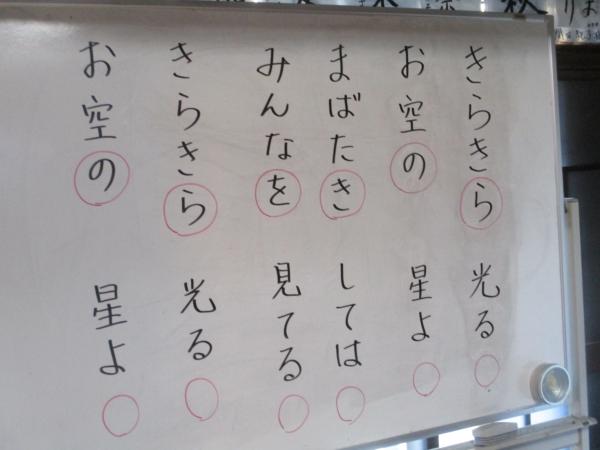 きらきら 光る
お空の 星よ
まばたき しては
みんなを 見てる
きらきら 光る
お空の 星よ